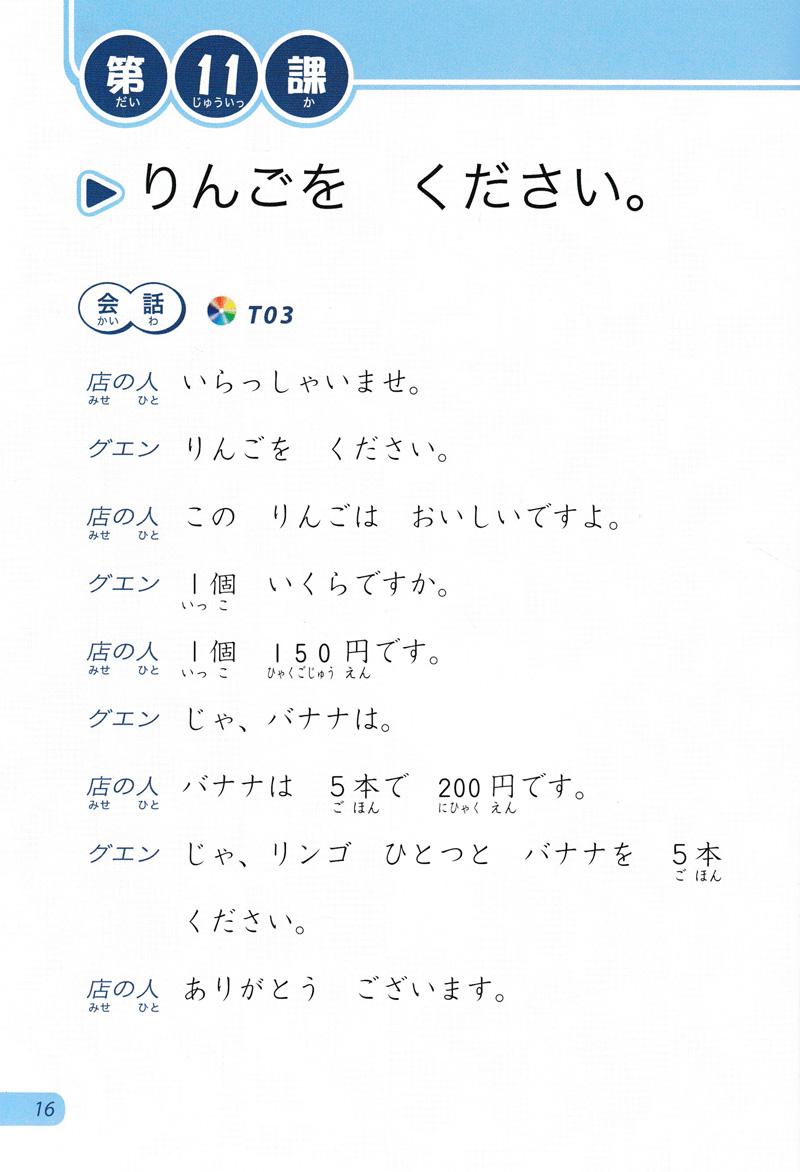 第 11 課
だい じゅういっ か
りんごを　ください。
会 話 T03
かい わ
店の人 いらっしゃいませ。
みせ ひと
グエン りんごを　ください。
店の人 この　りんごは　おいしいですよ。
みせ ひと
グエン 1個　いくらですか。
いっ こ
店の人 1個　150円です。
みせ ひと いっ こ ひゃくごじゅう えん
グエン じゃ、バナナは。
店の人 バナナは　5本で　200円です。
みせ ひと ご ほん にひゃく えん
グエン じゃ、リンゴ　ひとつと　バナナを　5本
ご ほん
ください。
店の人 ありがとう　ございます。
みせ ひと
16